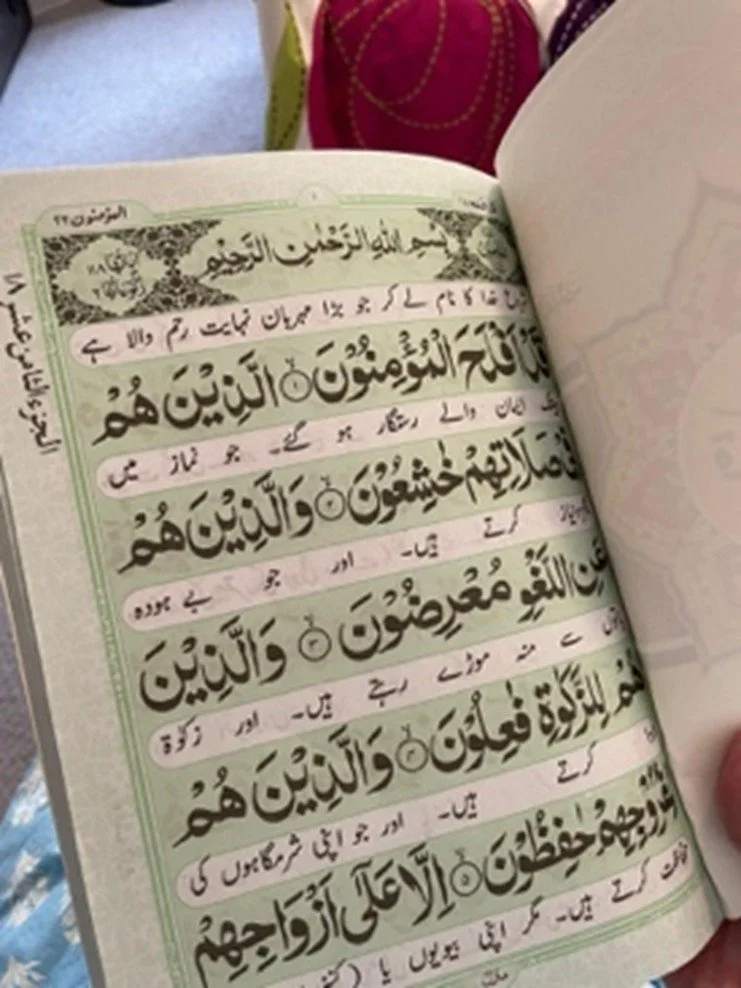 المؤمنون ٢٣
الجزء الثامن عشر ١٨
بِسْمِ اللهِ الرَّحْمٰنِ الرَّحِيْمِ
خدا کا نام لے کر جو بڑا مہربان نہایت رحم والا ہے
قَدْ اَفْلَحَ الْمُؤْمِنُوْنَ ۙ﴿۱﴾ الَّذِيْنَ هُمْ
ایمان والے رستگار ہو گئے۔ جو نماز میں
صَلَاتِهِمْ خٰشِعُوْنَ ۙ﴿۲﴾ وَالَّذِيْنَ هُمْ
کرتے ہیں۔ اور جو بے ہودہ
عَنِ اللَّغْوِ مُعْرِضُوْنَ ۙ﴿۳﴾ وَالَّذِيْنَ
سے منہ موڑے رہتے ہیں۔ اور زکوٰة
هُمْ لِلزَّكٰوةِ فٰعِلُوْنَ ۙ﴿۴﴾ وَالَّذِيْنَ هُمْ
کرتے ہیں۔ اور جو اپنی شرمگاہوں کی
لِفُرُوْجِهِمْ حٰفِظُوْنَ ۙ﴿۵﴾ اِلَّا عَلٰٓى اَزْوَاجِهِمْ
حفاظت کرتے ہیں۔ مگر اپنی بیویوں یا